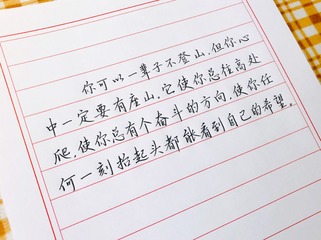 你可以一辈子不登山,但你心
中一定要有座山.它使你总往高处
爬,使你总有个奋斗的方向,使你任
何一刻抬起头都能看到自己的希望。